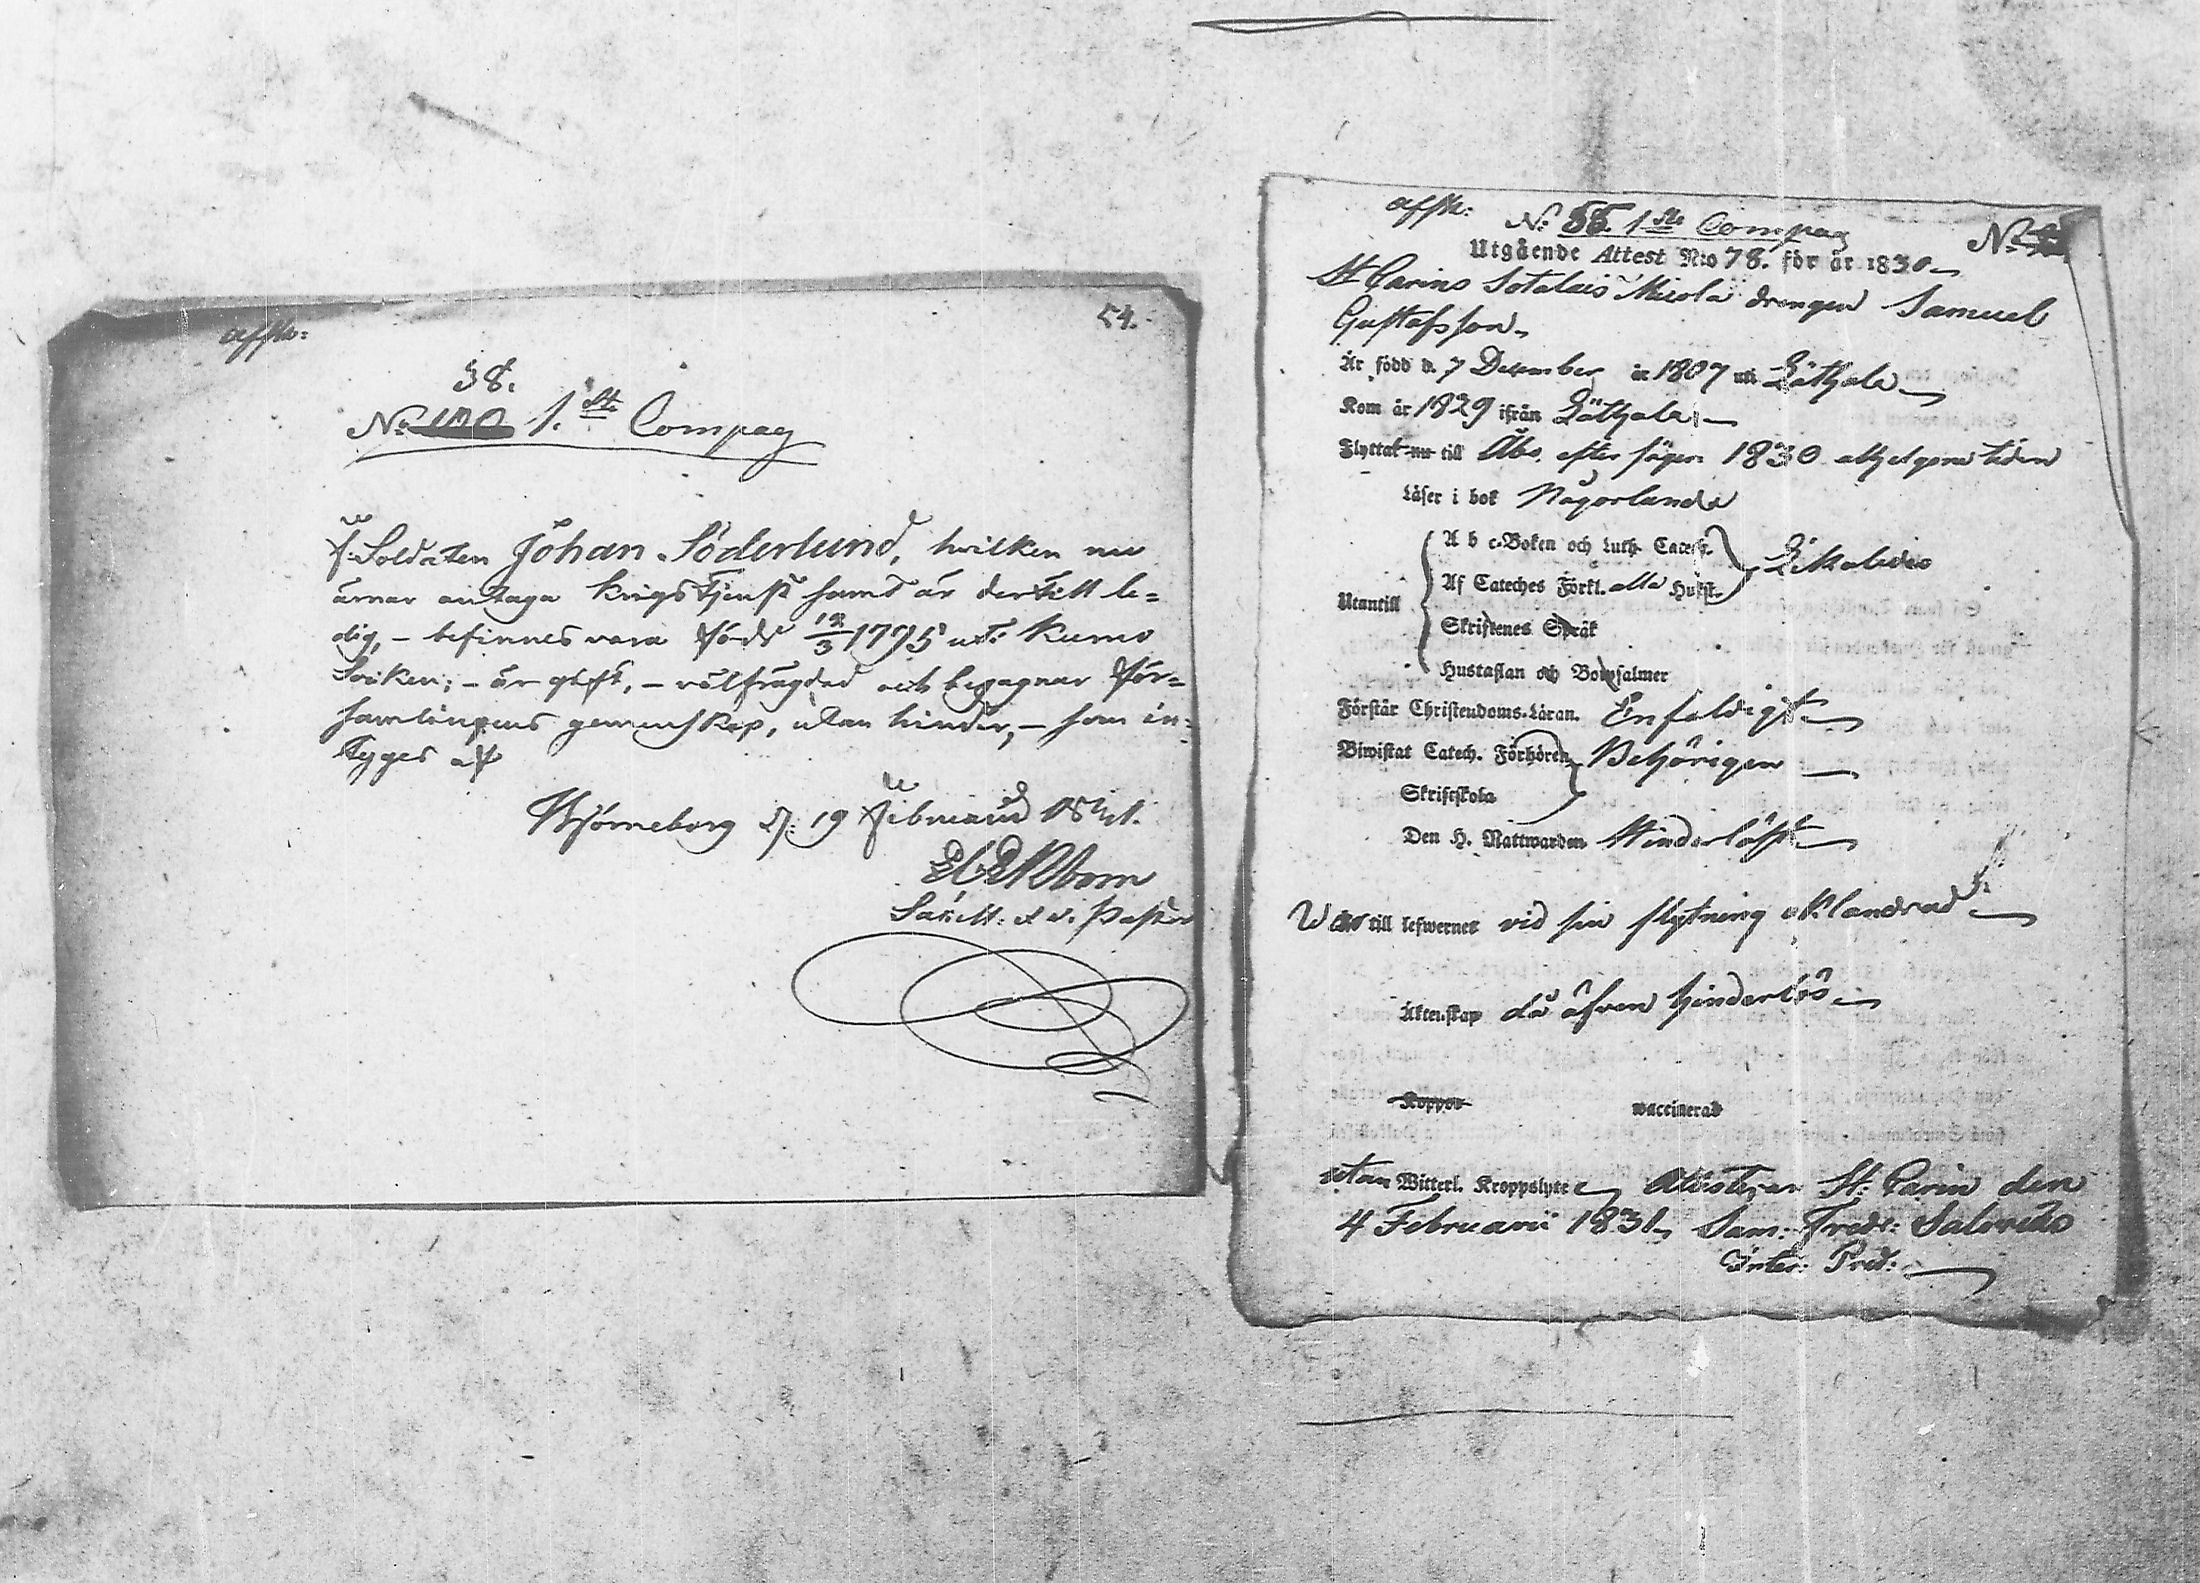 affsk:
54.
38.
No 100 1:sta Compag
f: Soldaten Johan Söderlund, hvilken nu
ärnar antaga krigstjenst samt är dertill le=
dig, – befinnes vara född 12/3 1795 uti Kumo
Socken; – är gift, – välfrägdad och begagnar för=
samlingens gemenskap, utan hinder, – som in=
tyges af
Björneborg d: 19 Februarii 1831.
Sacell: v. Pastor
affsk:
No 55. 1sta Compag
No
Utgående Attest N:o 78. för år 1830
St Carins Sotalais Micola drengen Samuel
Gustafsson
Är född d. 7 December år 1807 uti Löthala
Kom år 1829 ifrån Löthala
Flyttat nu till Åbo, efter sägen 1830 alhelgona tiden
Läser i bok Någorlunda
Utantill
A b c-Boken och Luth. Catech.
Likaledes
Af Cateches Förkl. alla Hufst.
Skriftenes Språk
Hustaflan och Botpsalmer
Förstår Christendoms-Läran. Enfaldigt
Biwistat Catech. Förhören Behörigen
Skriftskola
Den H. Nattwarden Hinderlöst
War till lefwernet vid sin flytning oklandrad
Äktenskap då äfven hinderlös
Koppor
waccinerad
utan Witterl. Kroppslyte Attesterar St: Carin den
4 Februarii 1831, Sam: Fredr: Salovius
Inter: Pred: